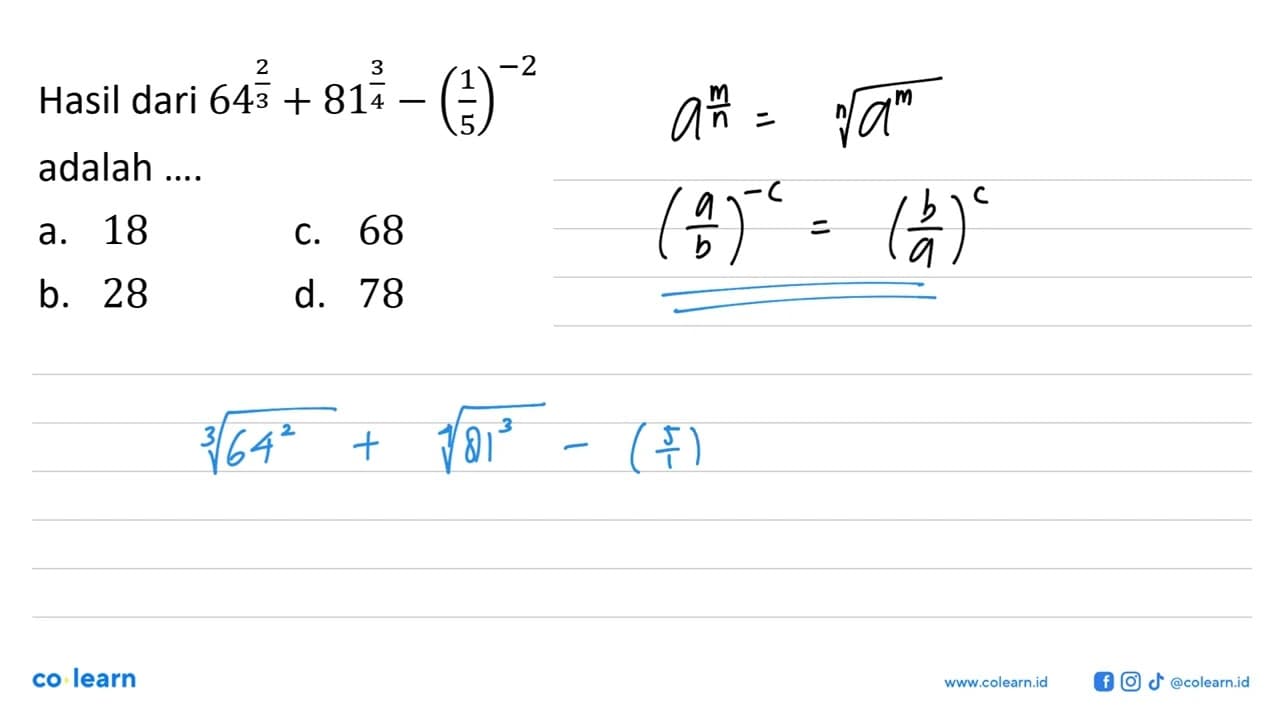 Hasil dari 64^(2/3) + 81^(3/4) − (1/5)^(−2)
adalah ....
a. 18 c. 68
b. 28 d. 78
a^(m/n) = ⁿ√(a^m)
(a/b)^(−c) = (b/a)^c
³√(64²) + ⁴√(81³) − (5/1)
co learn
www.colearn.id @colearn.id